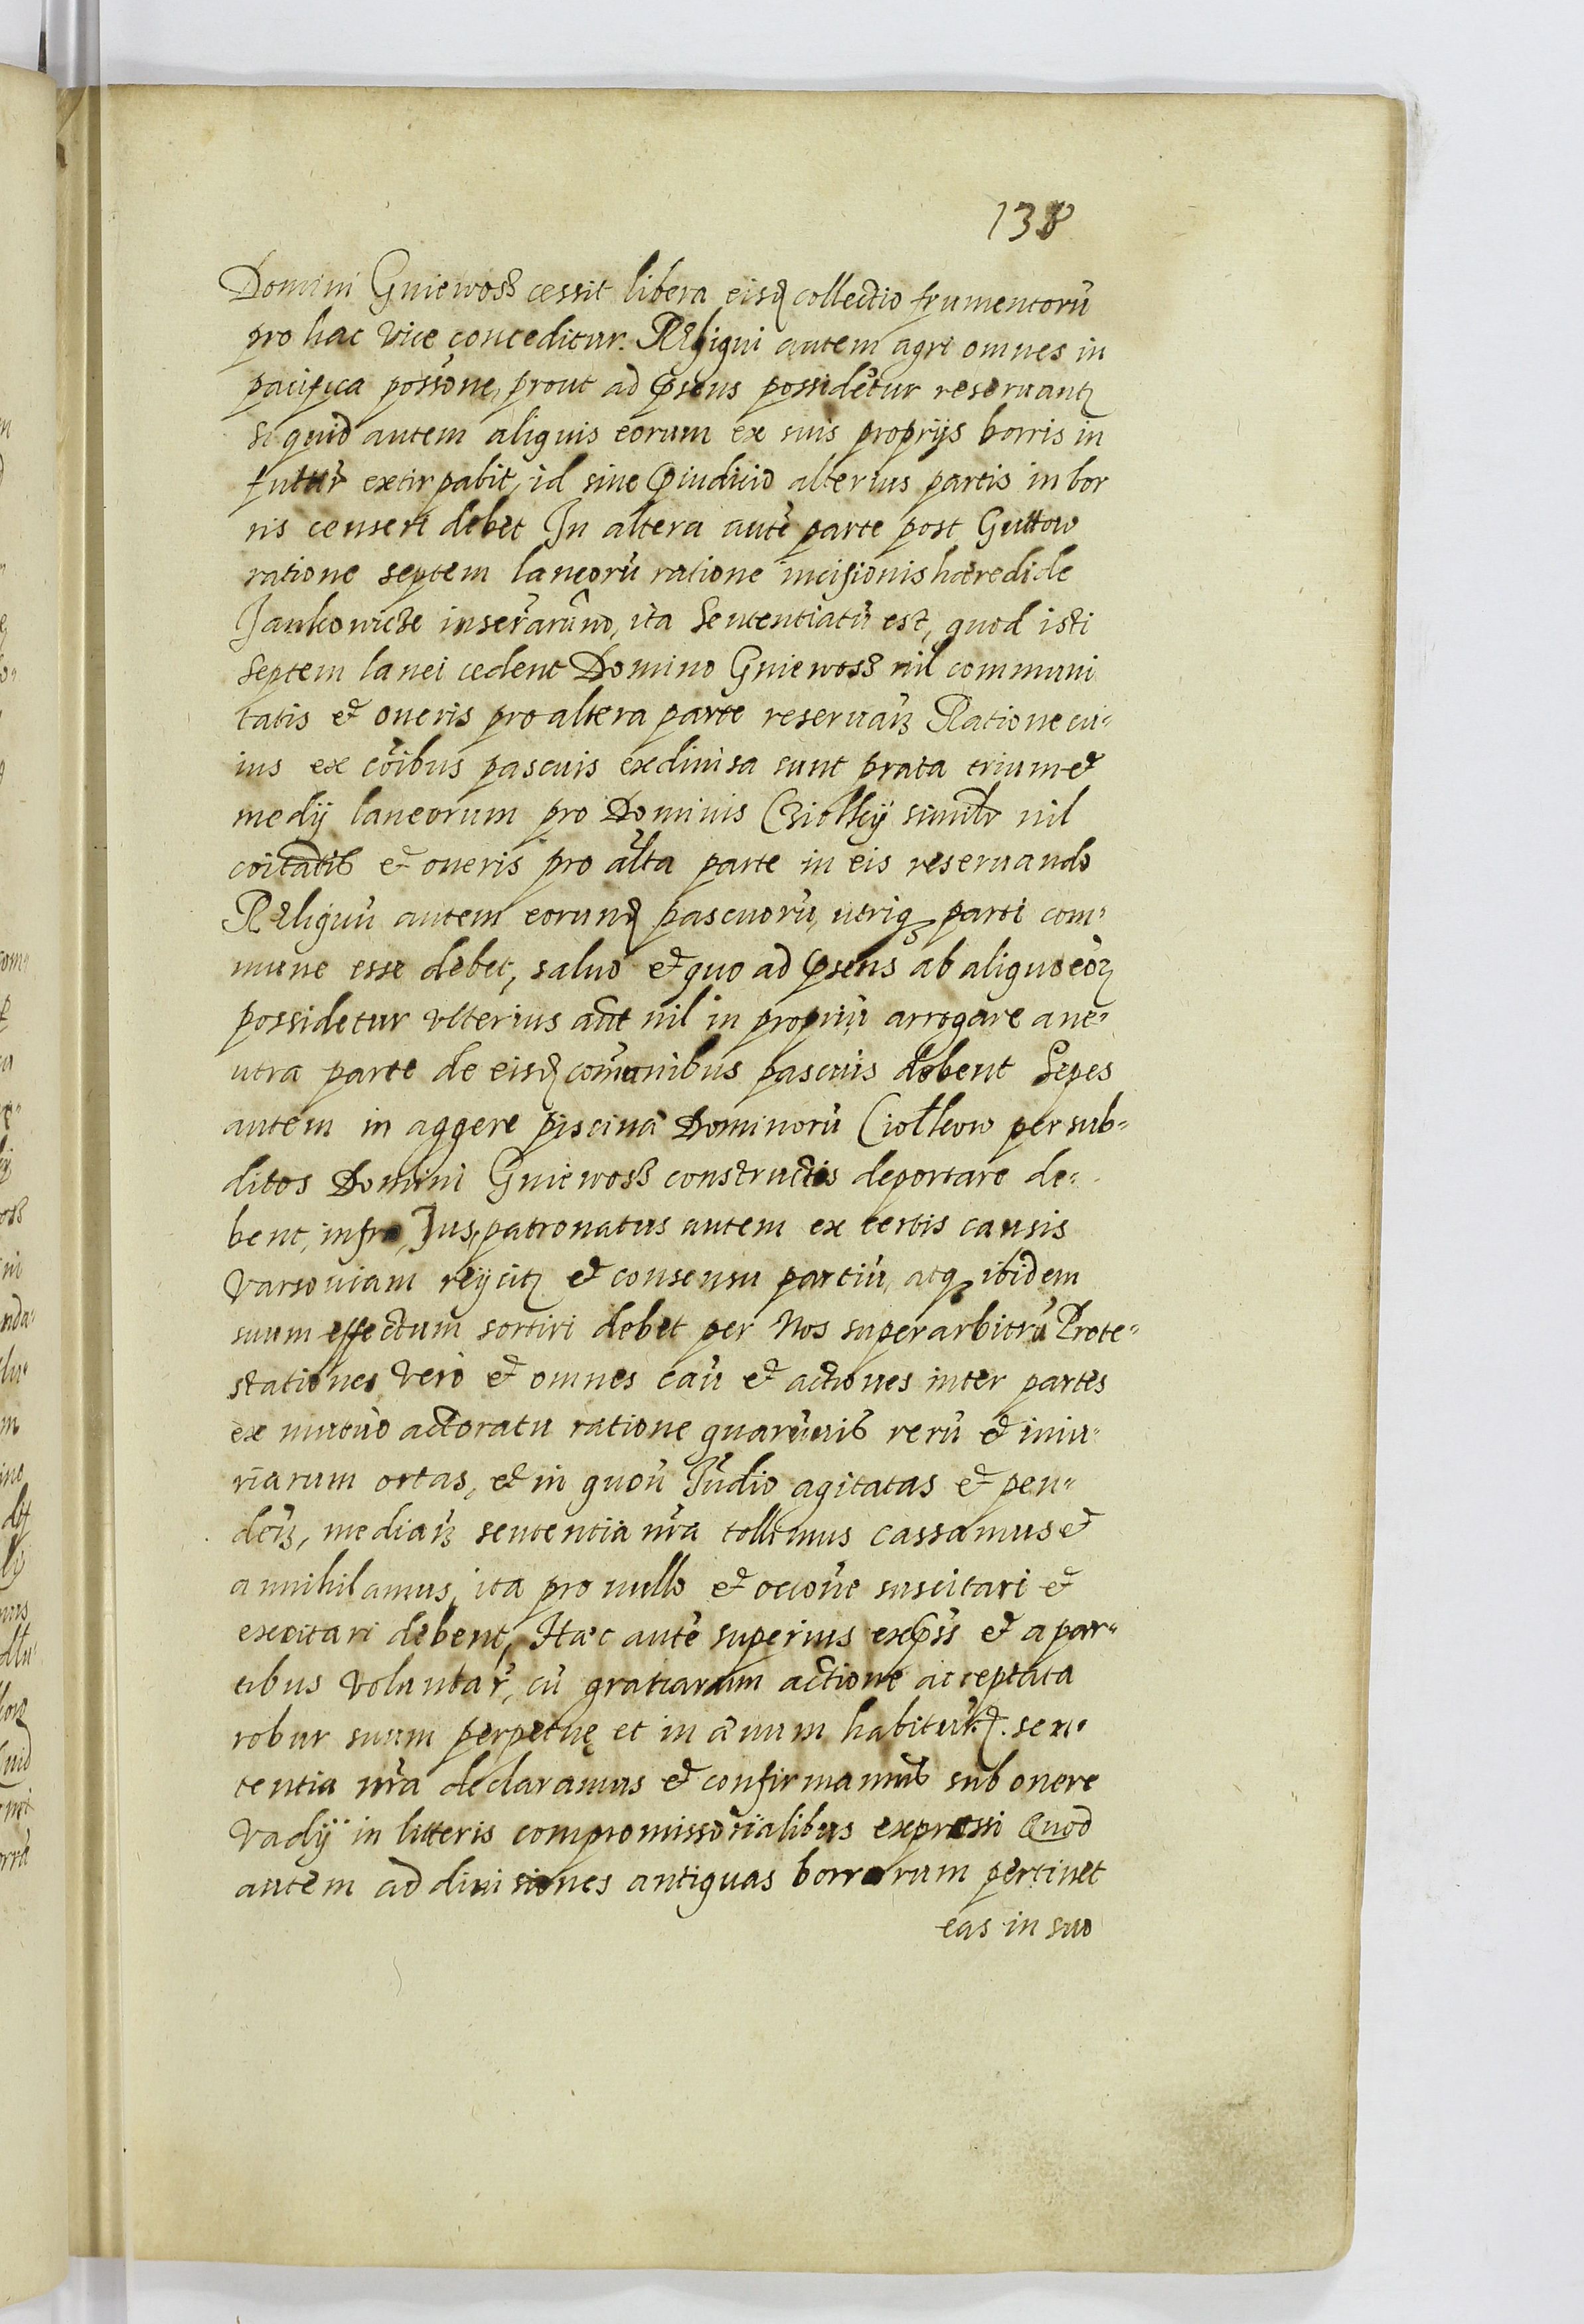 138
Domini Gniewosз cessit libera eisđ collectio frumentorū
pro hac vice conceditur. Reliqui autem agri omnes in
pacifica possōne, prout ad p̃sens possidētur reseruantꝛ
Si quid autem aliquis eorum ex suis proprijs borris in
futur̃ extirpabit, id sine p̃iudicio alterius partis in bor
ris censeri debet In altera autē parte post Guttow
ratione septem laneorū ratione incisionis hæredi de
Jankowicze inseraru͂nd, ita Sententiatū est, quod isti
Septem lanei cedent Domino Gniewosз nil communi
tatis et oneris pro altera parte reseruan̄з Ratione cu=
ius ex cōibus pascuis exdiuisa sunt prata trium et
medij laneorum pro Dominis Cziołkij similr nil
cōitatis et oneris pro alta parte in eis reseruando
Reliquū autem eorund pascuorū, utriqꝫ parti com=
mune esse debet, saluo et quo ad p̃sens ab aliquo eoꝝ
possidetur vlterius aut̄ nil in propriū arrogare a ne=
utra parte de eisđ com̃unibus pascuis debent Sepes
autem in aggere piscinā Dominorū Ciołkow per sub=
ditos Domini Gniewosз constructis deportare de=
bent, infra, Jus, patronatus autem ex certis causis
Varsouiam reijcitꝛ et consensu partiū, atqꝫ ibidem
suum effectum sortiri debet per Nos superarbitrū Prote=
stationes vero et omnes cāu et actiones inter partes
ex mutuo actoratu ratione quarūuis rerū et iniu=
riarum ortas, et in quōu Iudio agitatas et pen=
deн̄з, median̄з sententia nr̃a tollimus cassamus et
annihilamus, ita pro nullo et occōne suscitari et
excitari debent, Hæc autē superius exp̃ss et a par=
tibus voluntar̃, cū gratiarum actione acceptata
robur suum perpetuę et in æuum habitur̃.đ. sen=
tentia nr̃a declaramus et confirmamus sub onere
Vadij in litteris compromissorialibus expressi Quod
autem ad diuisiones antiquas borrarum pertinet
eas in suo